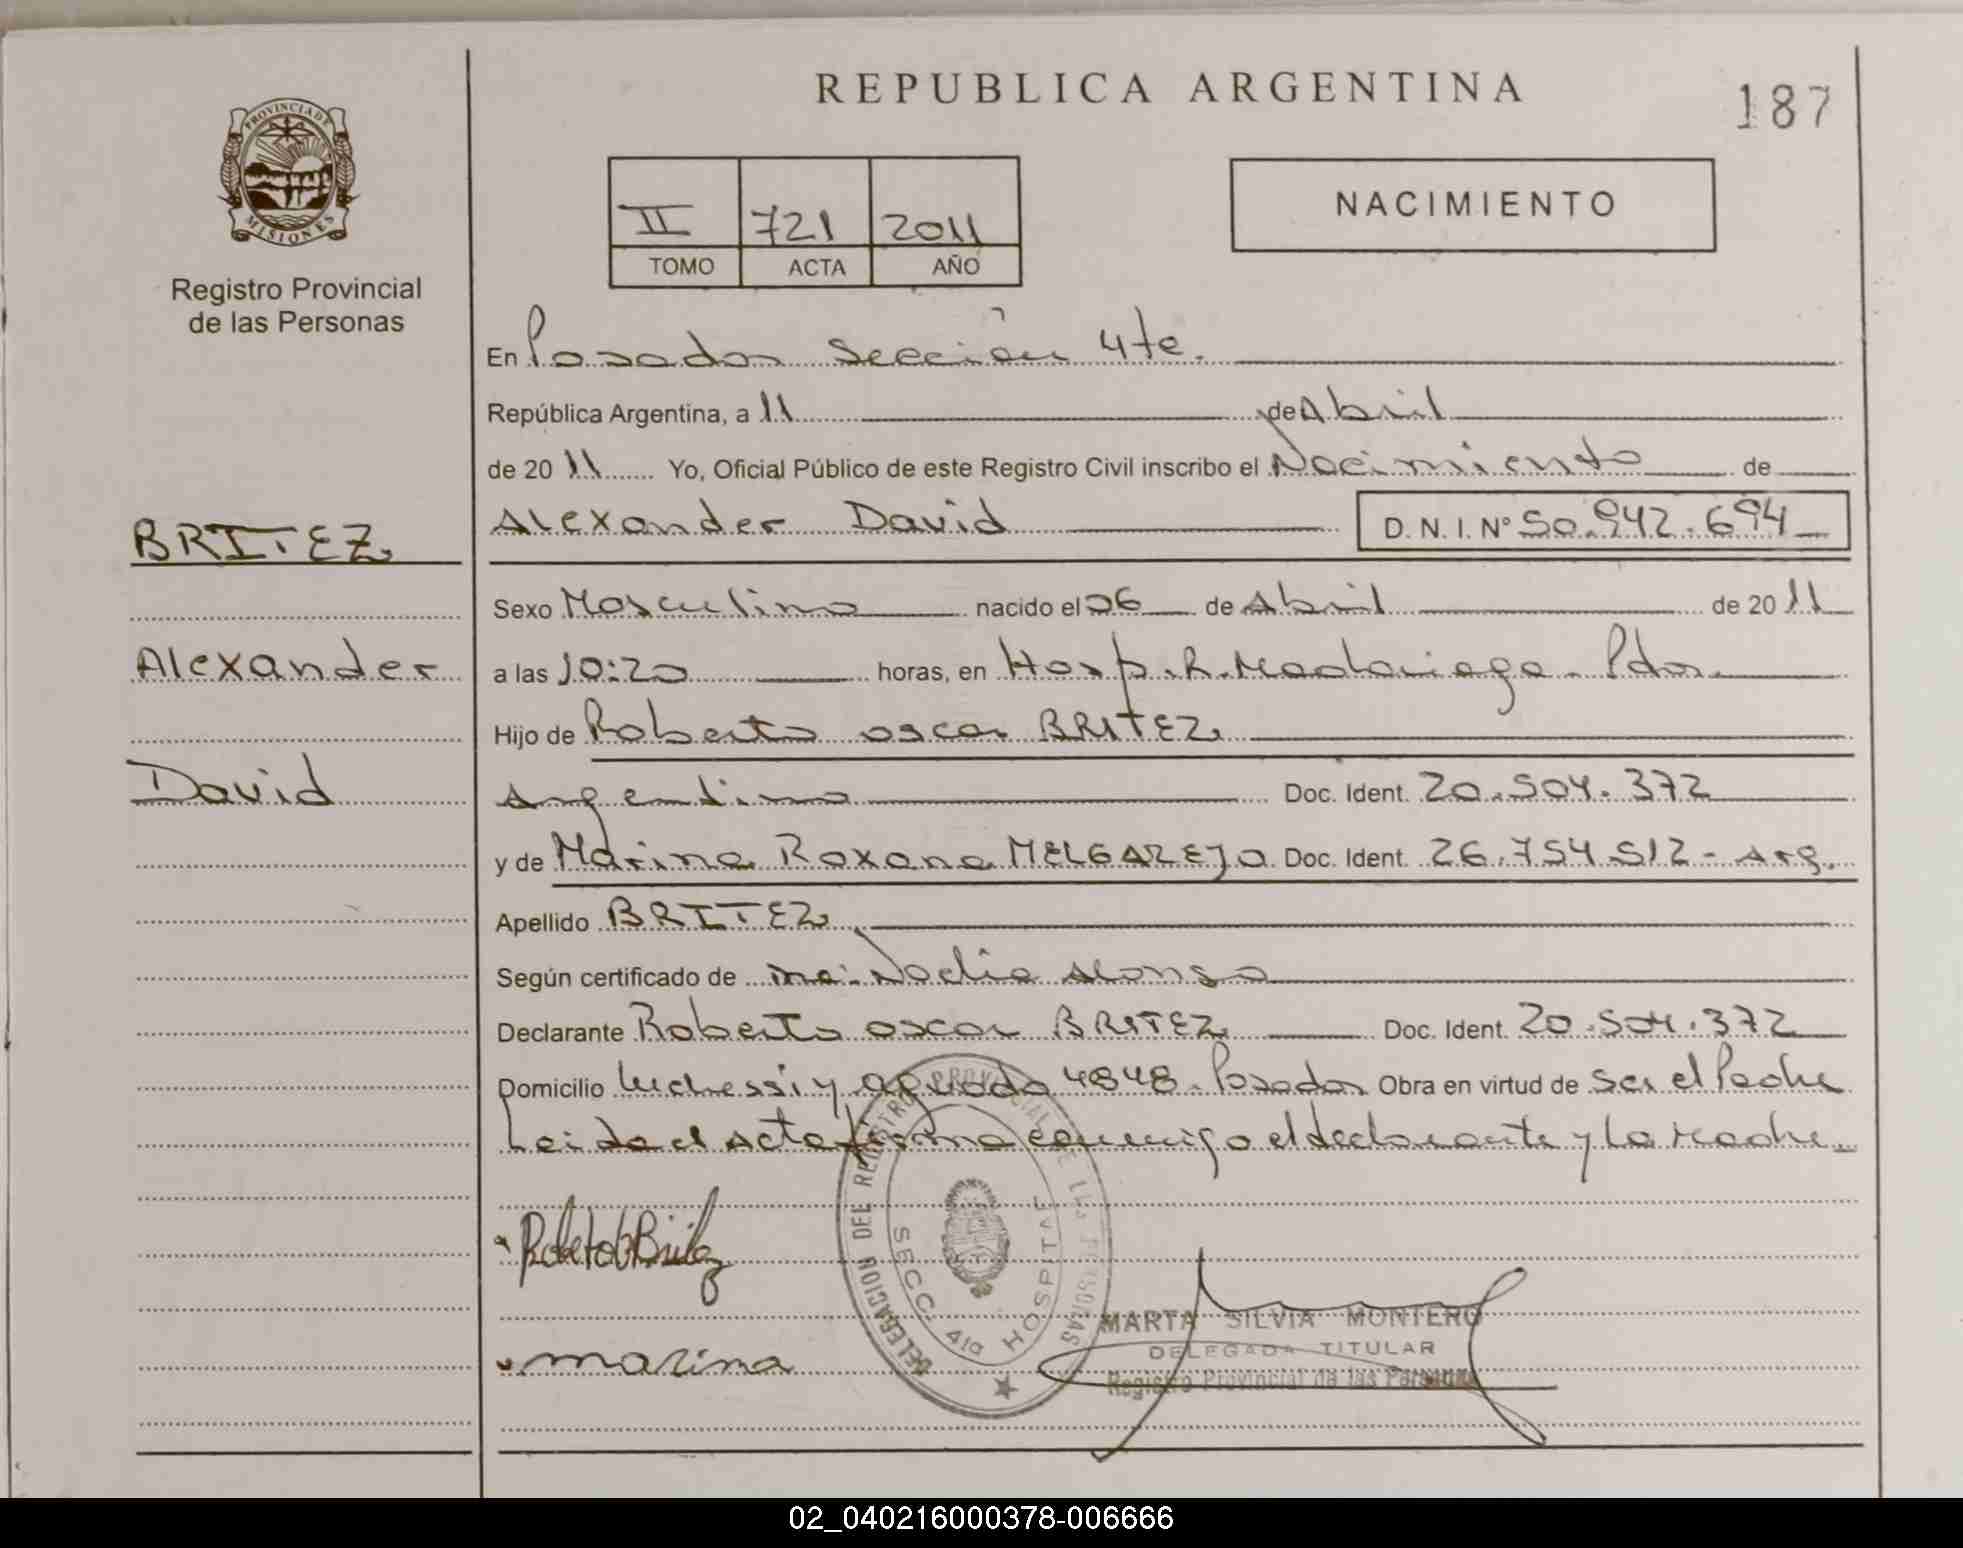 REPUBLICA ARGENTINA
187
PROVINCIA DE
MISIONES
Registro Provincial
de las Personas
II 721 2011
TOMO ACTA AÑO
NACIMIENTO
En Posadas Sección 4ta.
República Argentina, a 11 de Abril
de 20 11 Yo, Oficial Público de este Registro Civil inscribo el Nacimiento de
BRITEZ
Alexander David D. N. I. N° 50.942.694
Sexo Masculino nacido el 06 de Abril de 20 11
Alexander
a las 10:20 horas, en Hosp. R. Madariaga - Pdas.
Hijo de Roberto oscar BRITEZ
David
Argentino Doc. Ident. 20.504.372
y de Marina Roxana MELGAREJO Doc. Ident. 26.754.512 - Arg.
Apellido BRITEZ
Según certificado de Nadia Alonso
Declarante Roberto oscar BRITEZ Doc. Ident. 20.504.372
Domicilio y aguado 4848 - Posadas Obra en virtud de ser el Padre
Leida el Acta firma conmigo el declarante y la Madre
DELEGACION DEL REGISTRO PROVINCIAL DE LAS PERSONAS
SECC. 4ta HOSPITAL
Roberto O Britez
marina
MARTA SILVIA MONTERO
DELEGADA TITULAR
Registro Provincial de las Personas
02_040216000378-006666